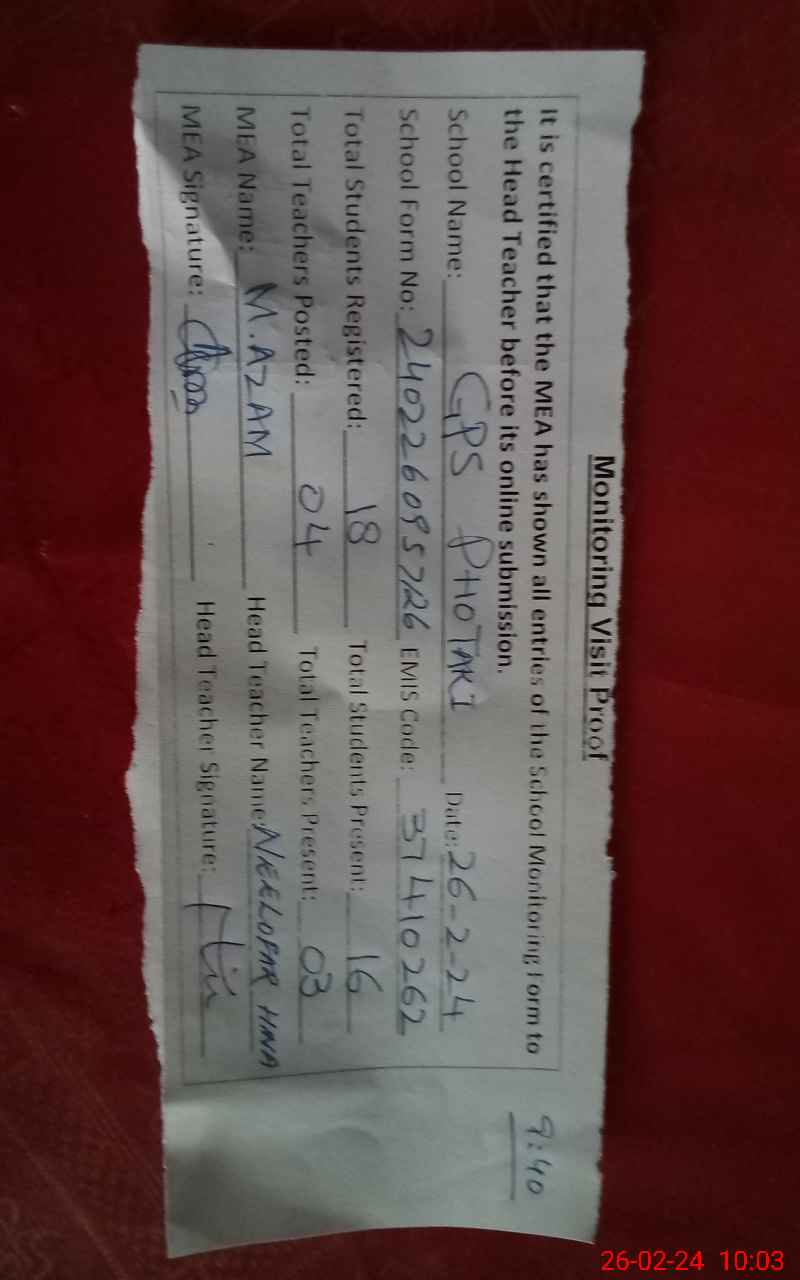 Monitoring Visit Proof
9:40
It is certified that the MEA has shown all entries of the School Monitoring Form to
the Head Teacher before its online submission.
School Name: GPS PHOTAKI Date: 26-2-24
School Form No: EMIS Code: 37410262
Total Students Registered: 18 Total Students Present: 16
Total Teachers Posted: 04 Total Teachers Present: 03
MEA Name: M.AZAM Head Teacher Name: NEELOFAR HINA
MEA Signature: Head Teacher Signature:
26-02-24 10:03